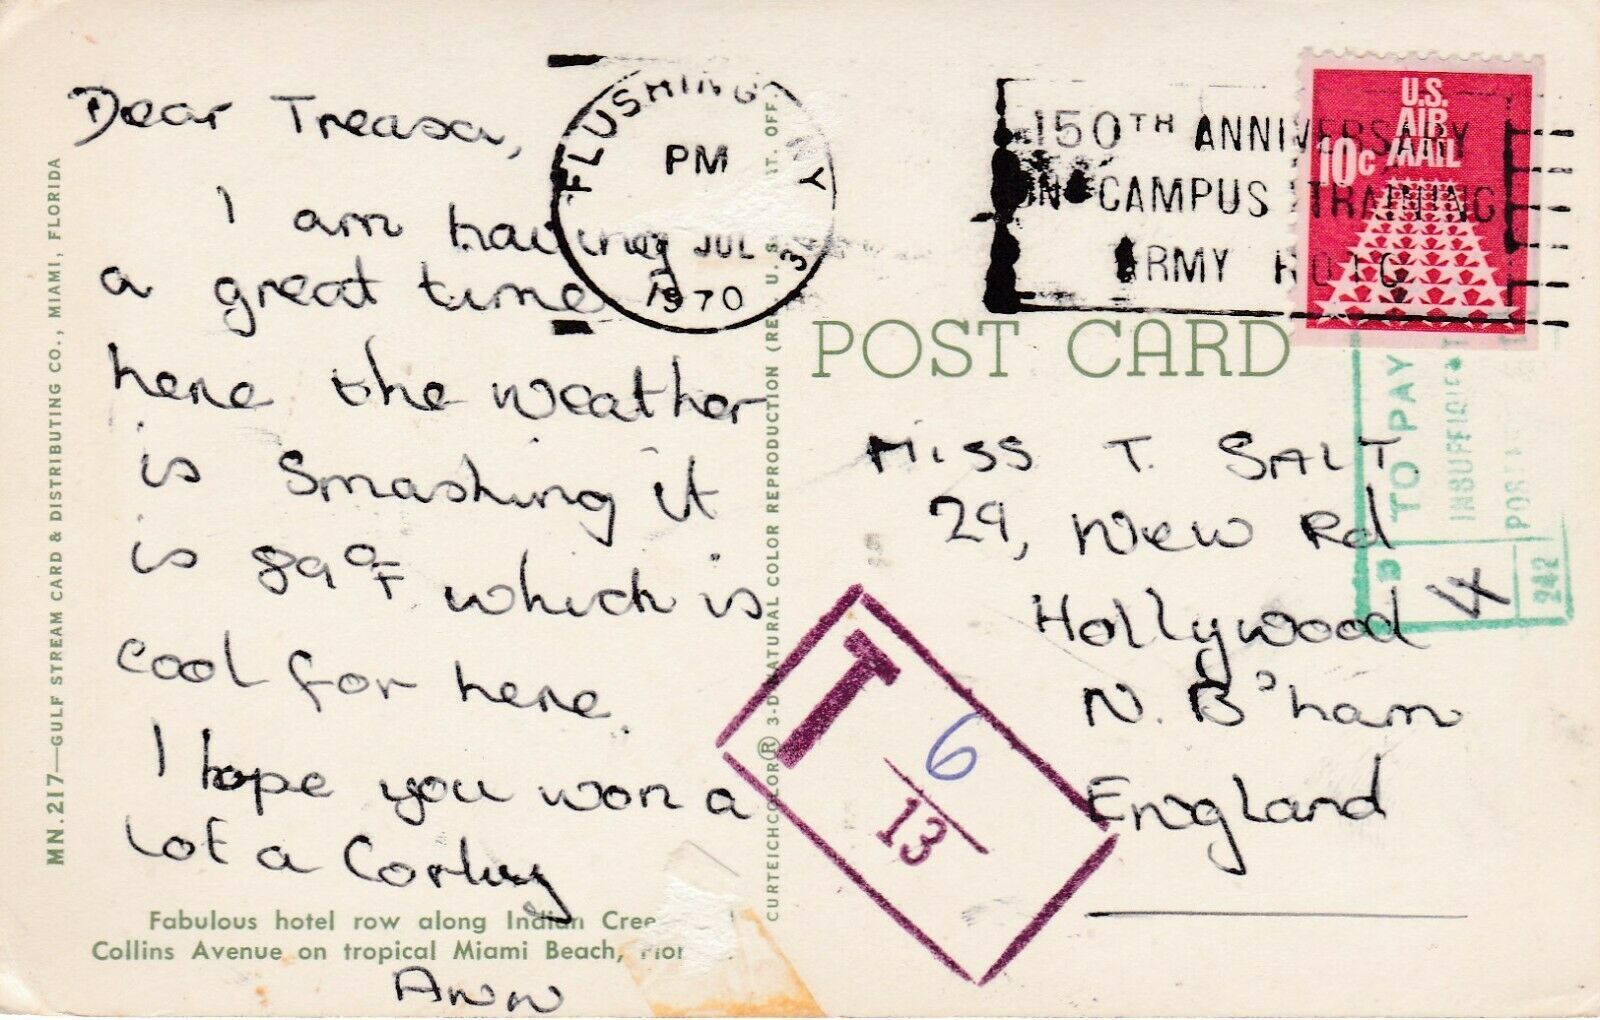 Dear Treasa,
I am having
a great time
here the weather
is Smashing it
is 89°F which is
cool for here.
I hope you won a
lot a Corley
Ann
Fabulous hotel row along Indian Cree
Collins Avenue on tropical Miami Beach, Flor
MN. 217—GULF STREAM CARD & DISTRIBUTING CO., MIAMI, FLORIDA
CURTEICHCOLOR® 3-D NATURAL COLOR REPRODUCTION (RE U. S. T. OFF.
FLUSHING, NY
PM
JUL
1970
3
150TH ANNIVERSARY
ON CAMPUS TRAINING
ARMY ROTC
U.S.
AIR
MAIL
10c
POST CARD
MISS T. SALT
29, New Rd
Hollywood
N. B'ham
England
TO PAY
INSUFFICIENT
242
T
6
13